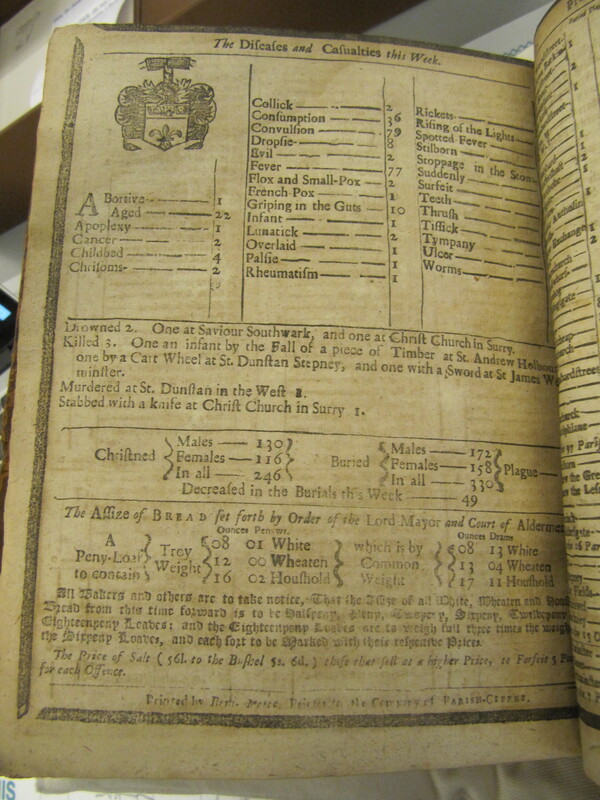 The Diseaſes and Caſualties this Week.
ABortive 1
Aged 22
Apoplexy 1
Cancer 2
Childbed 4
Chriſoms 2
Collick 2
Conſumption 36
Convulſion 79
Dropſie 8
Evil 2
Fever 77
Flox and Small-Pox 2
French Pox 1
Griping in the Guts 10
Infant 1
Lunatick 2
Overlaid 1
Palſie 1
Rheumatiſm 1
Rickets
Riſing of the Lights
Spotted Fever
Stilborn
Stoppage in the Stom
Suddenly
Surfeit
Teeth
Thruſh
Tiſſick
Tympany
Ulcer
Worms
Drowned 2. One at Saviour Southwark, and one at Chriſt Church in Surry.
Killed 3. One an infant by the Fall of a piece of Timber at St. Andrew Holbourn
one by a Cart Wheel at St. Dunſtan Stepney, and one with a Sword at St James We
minſter.
Murdered at St. Dunſtan in the Weſt 1.
Stabbed with a knife at Chriſt Church in Surry 1.
Chriſtned
Males 130
Females 116
In all 246
Buried
Males 172
Females 158
In all 330
Plague
Decreased in the Burials this Week 49
The Aſſize of BREAD ſet forth by Order of the Lord Mayor and Court of Aldermen
A
Peny-Loaf
to contain
Troy
Weight
Ounces Pen-wt.
08 01 White
12 00 Wheaten
16 02 Houſhold
which is by
Common
Weight
Ounces Drams
08 13 White
13 04 Wheaten
17 11 Houſhold
All Bakers and others are to take notice, That the Aſſize of all White, Wheaten and Houſ
Bread from this time forward is to be Halfpeny, Peny, Twopeny, Sixpeny, Twelvepeny
Eighteenpeny Loaves: and the Eighteenpeny Loaves are to weigh full three times the weight
the Sixpeny Loaves, and each ſort to be Marked with their reſpective Prices.
The Price of Salt ( 56l. to the Buſhel 5s. 6d. ) thoſe that ſell at a higher Price, to Forfeit 5
for each Offence.
Printed by Printer to the Company of PARISH-CLERKS.